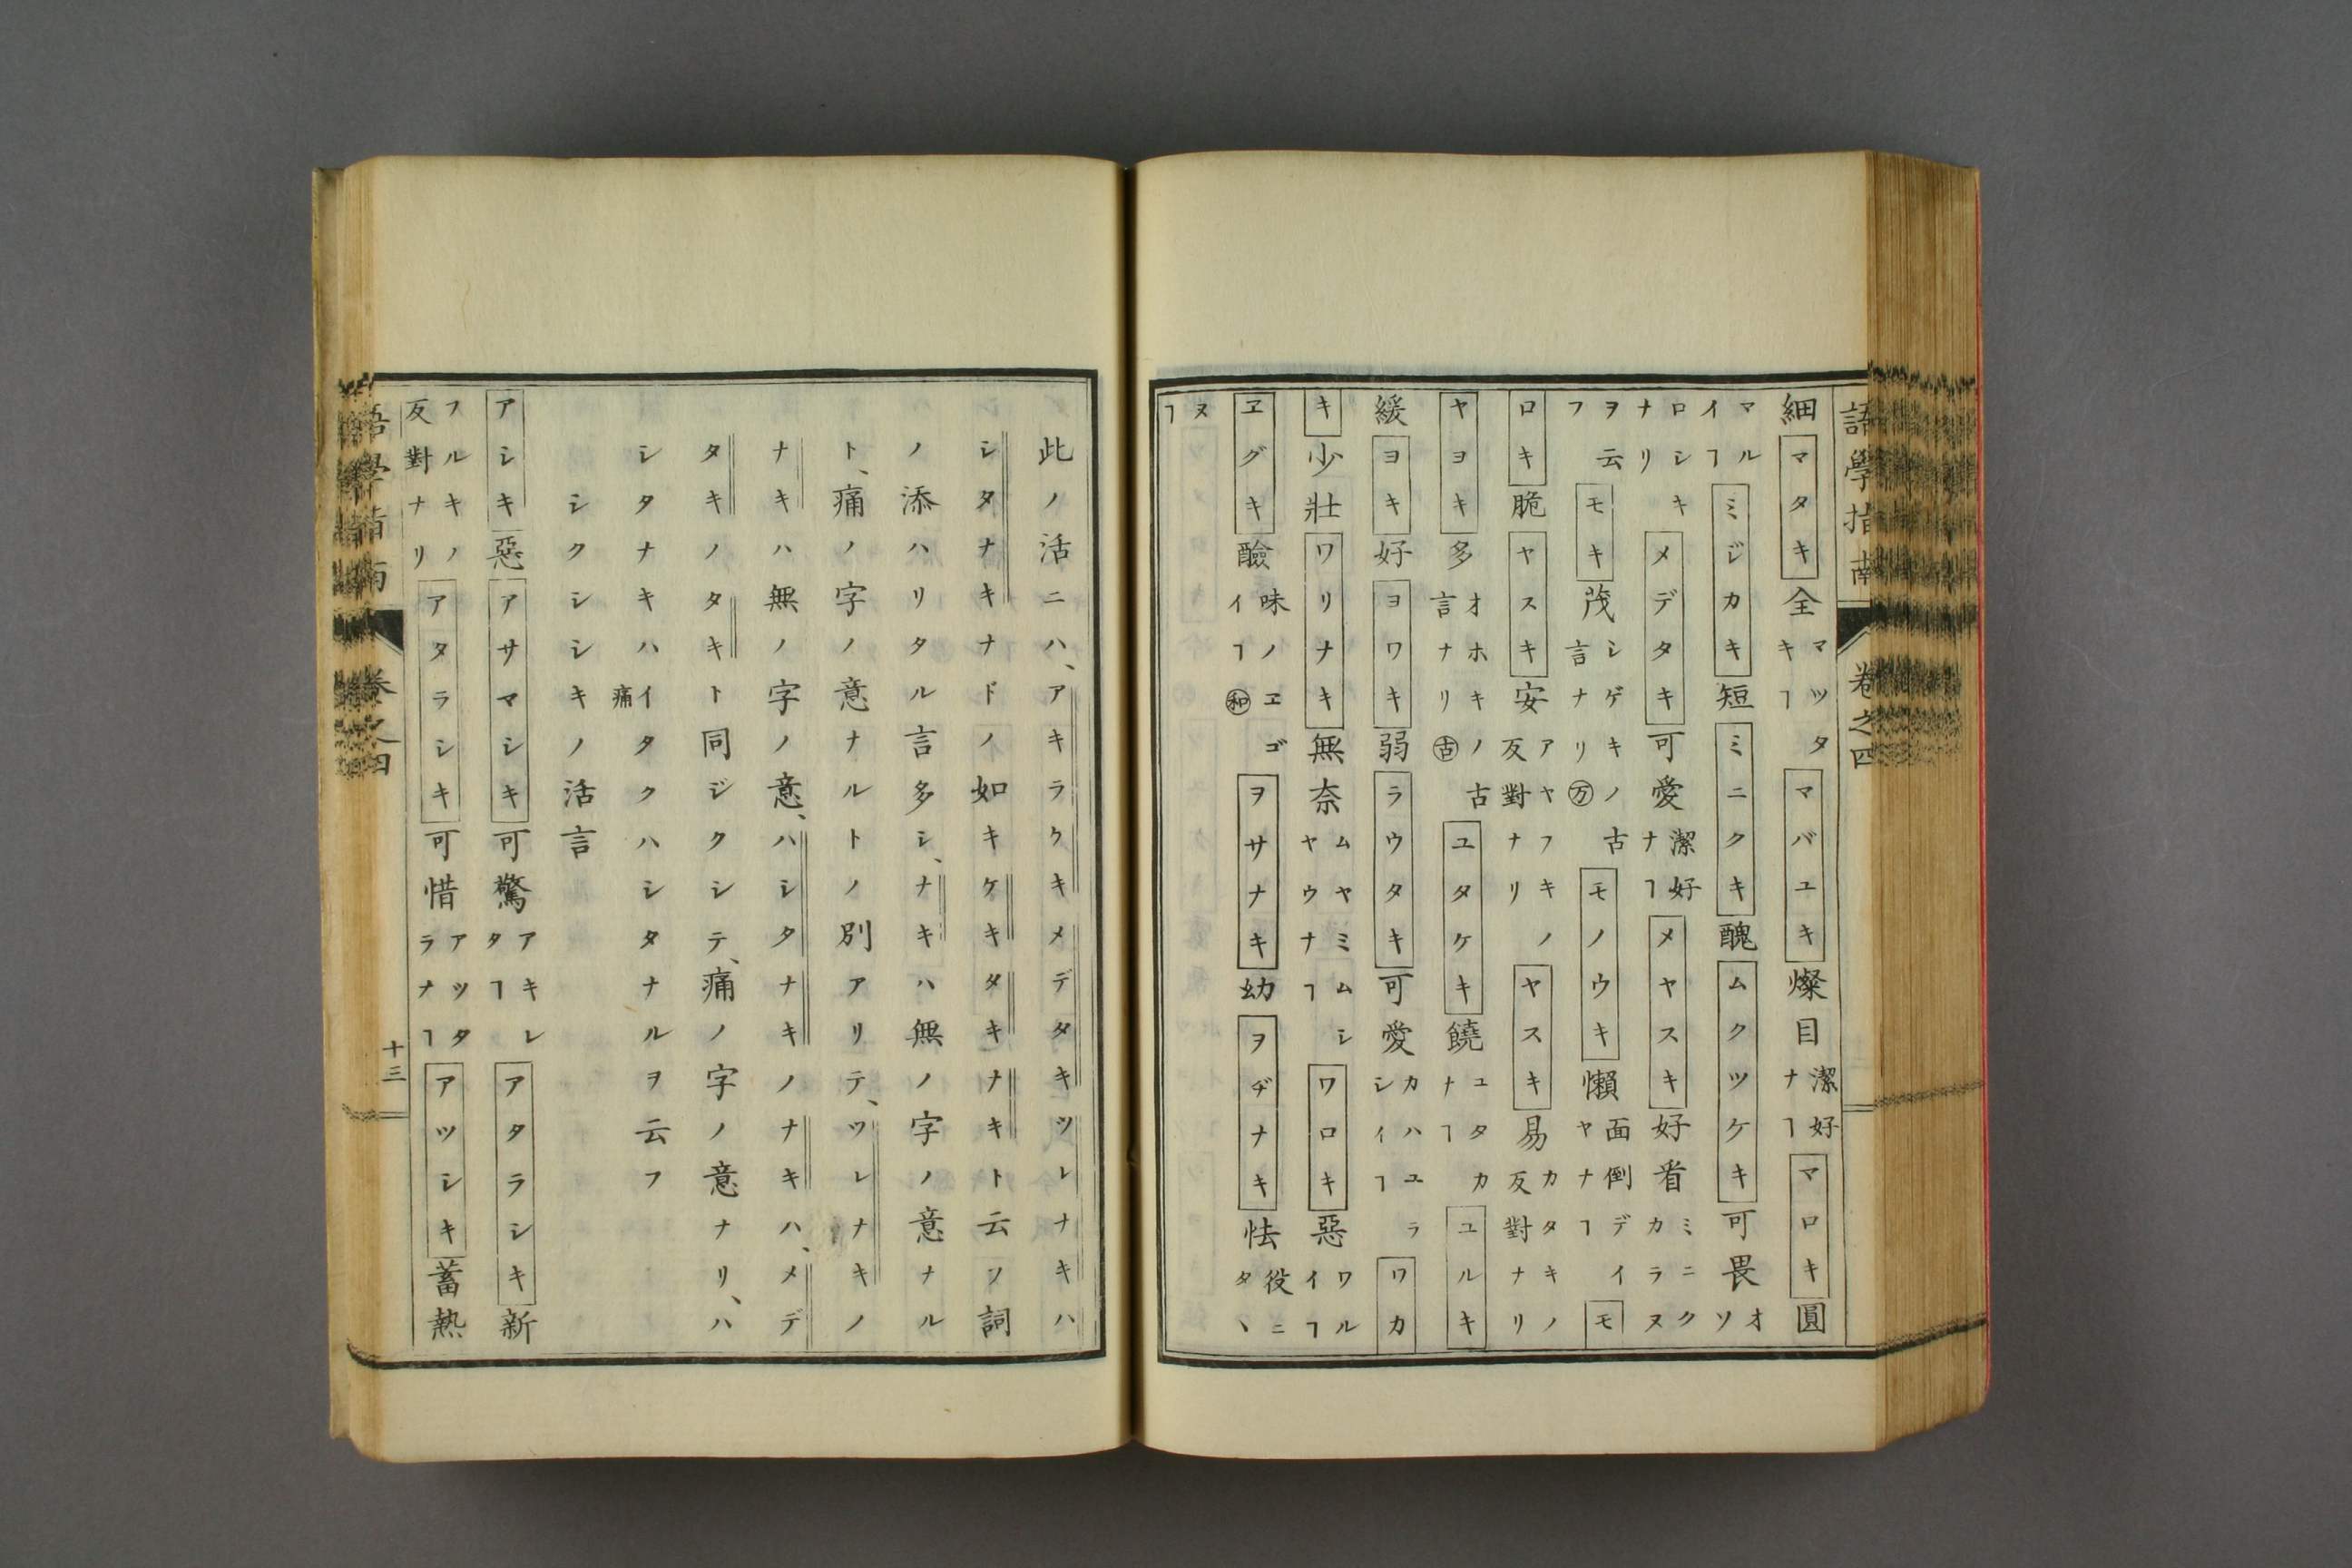 語學指南 卷之四
細マタキ全マツタキヿマバユキ燦目潔好ナヿマロキ圓
マルイヿミジカキ短ミニクキ醜ムクツケキ可畏オソ
ロシキナリメデタキ可愛潔好ナヿメヤスキ好看ミニクカラヌ
ヲ云フモキ茂シゲキノ古言ナリ万モノウキ懶面倒デイヤナヿモ
ロキ脆ヤスキ安アヤフキノ反對ナリヤスキ易カタキノ反對ナリ
ヤヨキ多オホキノ古言ナリ古ユタケキ饒ユタカナヿユルキ
緩ヨキ好ヨワキ弱ラウタキ可愛カハユラシイヿワカ
キ少壯ワリナキ無奈ムヤミムシヤウナヿワロキ惡ワルイヿ
ヱグキ醶味ノヱゴイヿ和ヲサナキ幼ヲヂナキ怯役ニタヽ
ヌヿ
此ノ活ニハ、アキラケキメデタキツレナキハ
シタナキナドノ如キケキタキナキト云フ詞
ノ添ハリタル言多シ、ナキハ無ノ字ノ意ナル
ト、痛ノ字ノ意ナルトノ別アリテ、ツレナキノ
ナキハ無ノ字ノ意、ハシタナキノナキハ、メデ
タキノタキト同ジクシテ、痛ノ字ノ意ナリ、ハ
シタナキハイタク痛ハシタナルヲ云フ
シクシシキノ活言
アシキ惡アサマシキ可驚アキレタヿアタラシキ新
フルキノ反對ナリアタラシキ可惜アツタラナヿアツシキ蓄熱
語學指南 卷之四 十三